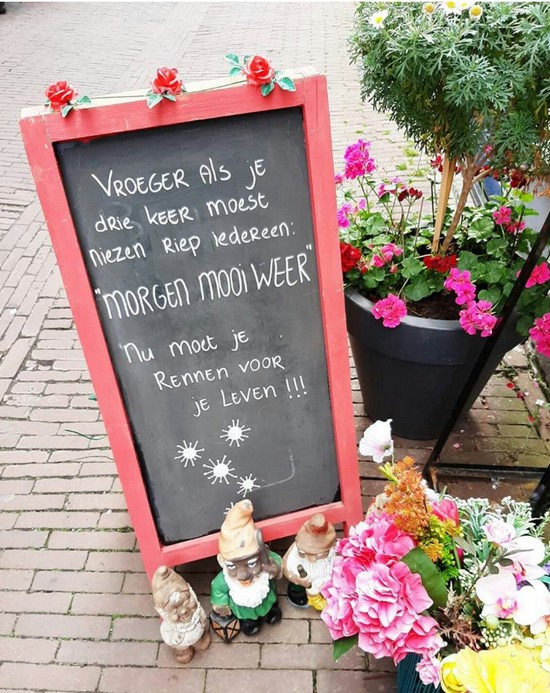 Vroeger als je
drie keer moest
niezen riep iedereen:
"MORGEN MOOI WEER"
Nu moet je
Rennen voor
je Leven !!!